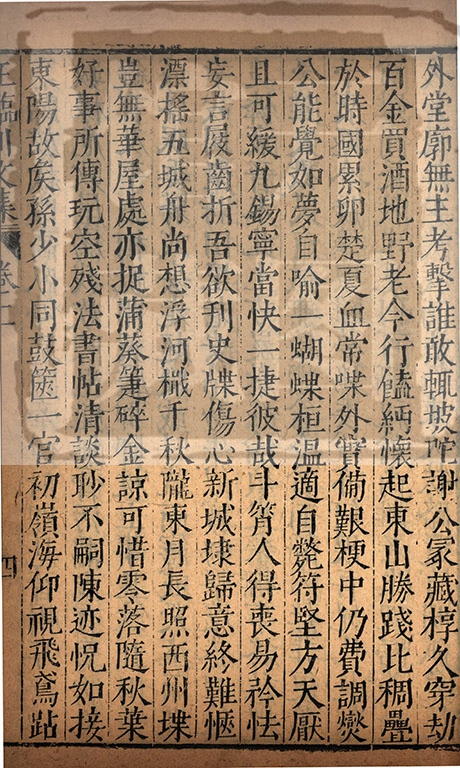 外堂廓無主考擊誰敢輒坡陀謝公冢藏椁久穿劫
百金買酒地野老今行饁緬懷起東山勝踐比稠疊
於時國累卵楚夏血常喋外實備艱梗中仍費調爕
公能覺如夢自喻一蝴蝶桓溫適自斃符堅方天厭
且可緩九錫寧當快一捷彼哉斗筲人得喪易矜怯
妄言屐齒折吾欲刊史牒傷心新城埭歸意終難愜
漂搖五城舟尚想浮河檝千秋隴東月長照西州堞
豈無華屋處亦捉蒲葵箑碎金諒可惜零落隨秋葉
好事所傳玩空殘法書帖清談眇不嗣陳迹怳如接
東陽故矦孫少小同鼓篋一官初嶺海仰視飛鳶跕
王臨川文集 卷二 四